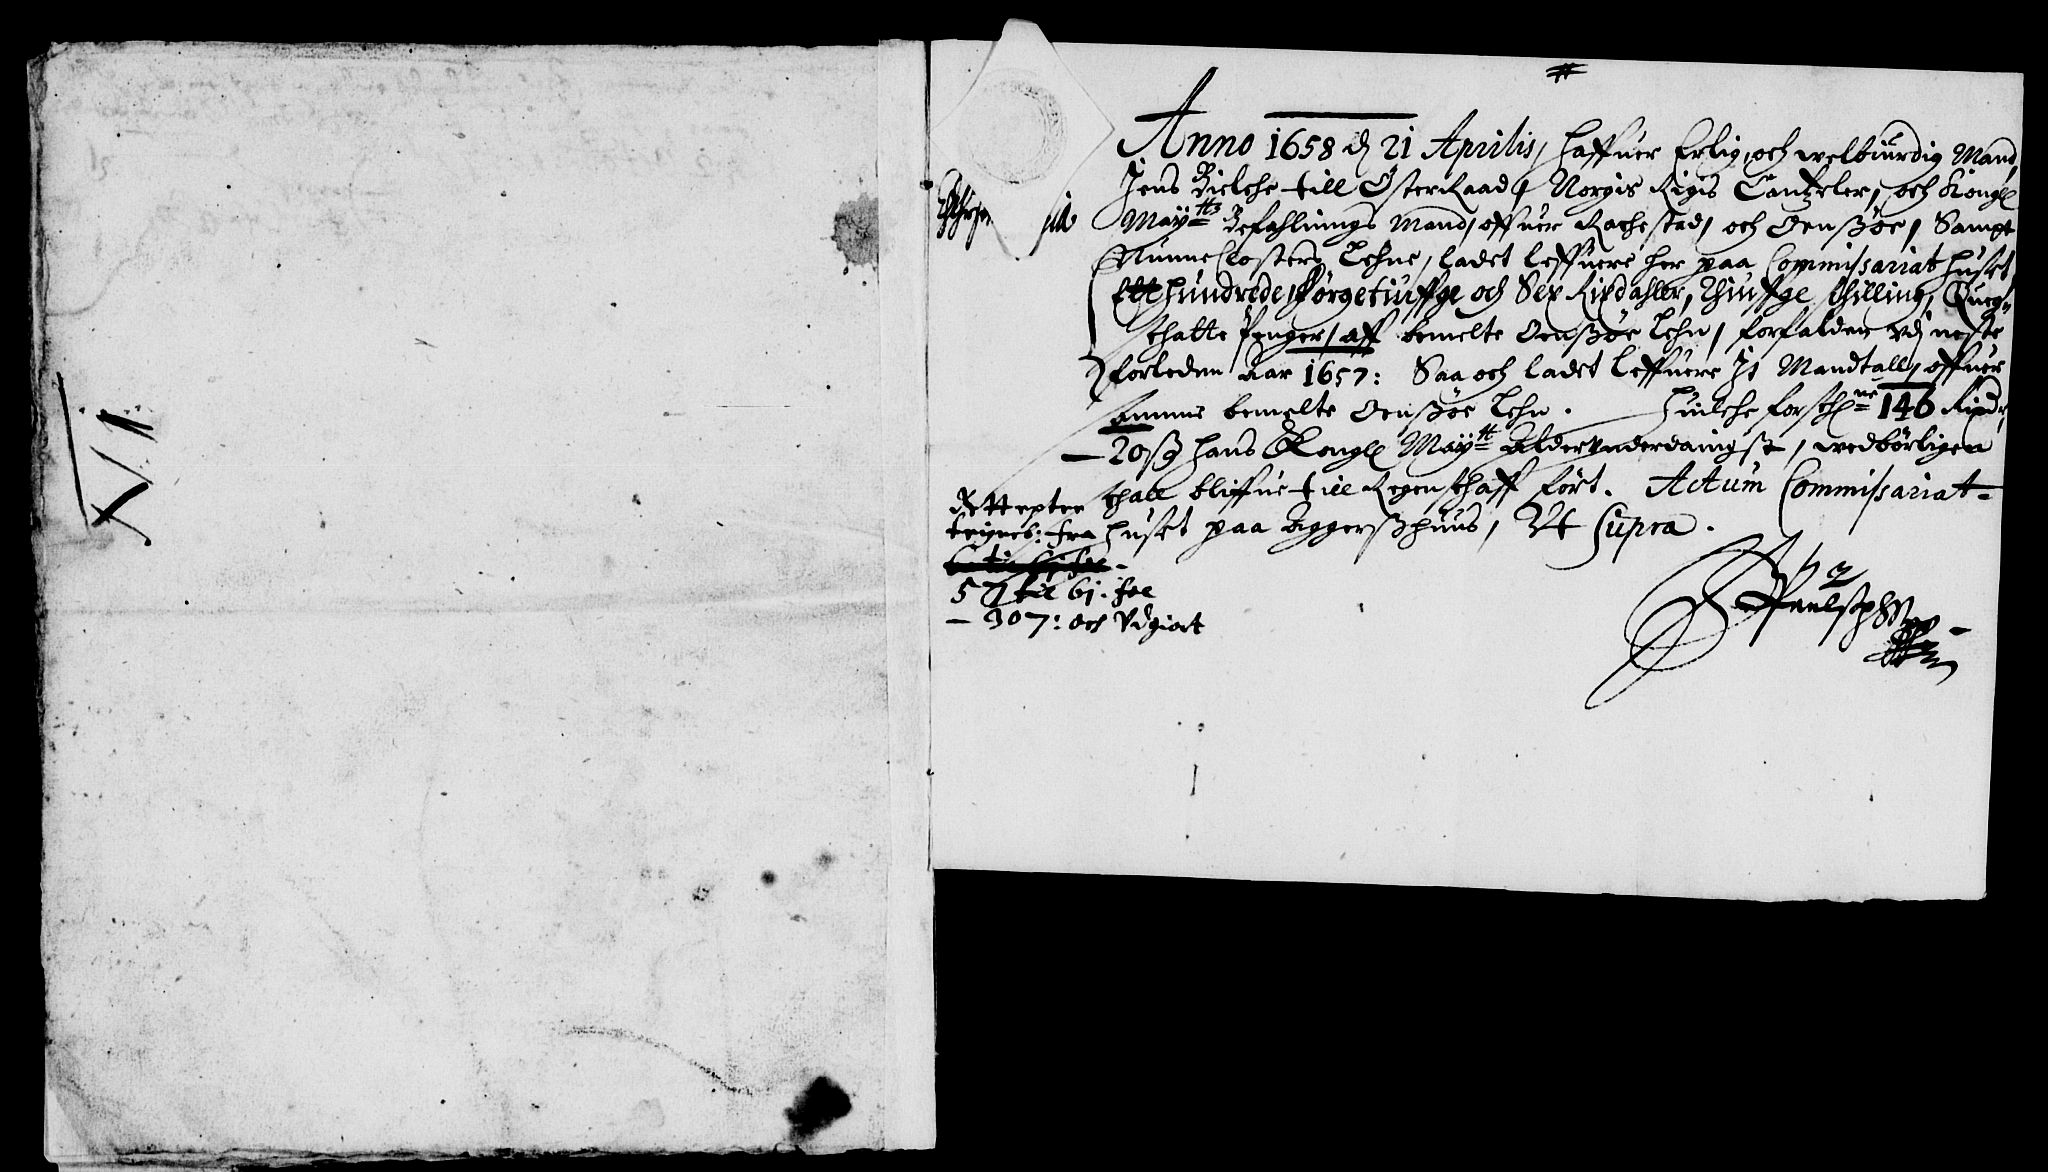 Anno 1658 d 21 Aprilis, haffuer Erlig, och welbiurdig Mand,
Jens Bielche till Østerraad, Norgis Rigis Cantzeler, och Kongl
Maytts Befahlnings Mand, offuer Rachestad, och Onssøe, Sampt
Nunne Closters Lehne, ladet leffuere her paa Commissariathuset
Ett hundrede, Förgetiuffge och Sex Rixdahler, Thiuffge schilling, Queg-
schatte Penger, aff bemelte Onssøe Lehn, forfalden vdj neste
forleden Aar 1657: Saa och ladet leffuere It Mandtall, offuer
samme bemelte Onssøe Lehn. Huilche forschne 146 Rixdr,
— 20 ß hans Kongl Maytt Aldervnderdaingst, wedbørligen
schall bliffue till Regenschaffført. Actum Commissariat-
huset paa Aggerßhuus, Vt Supra.
Rett epter
fra
57 til 61. fol
— 307: och Vdgiort